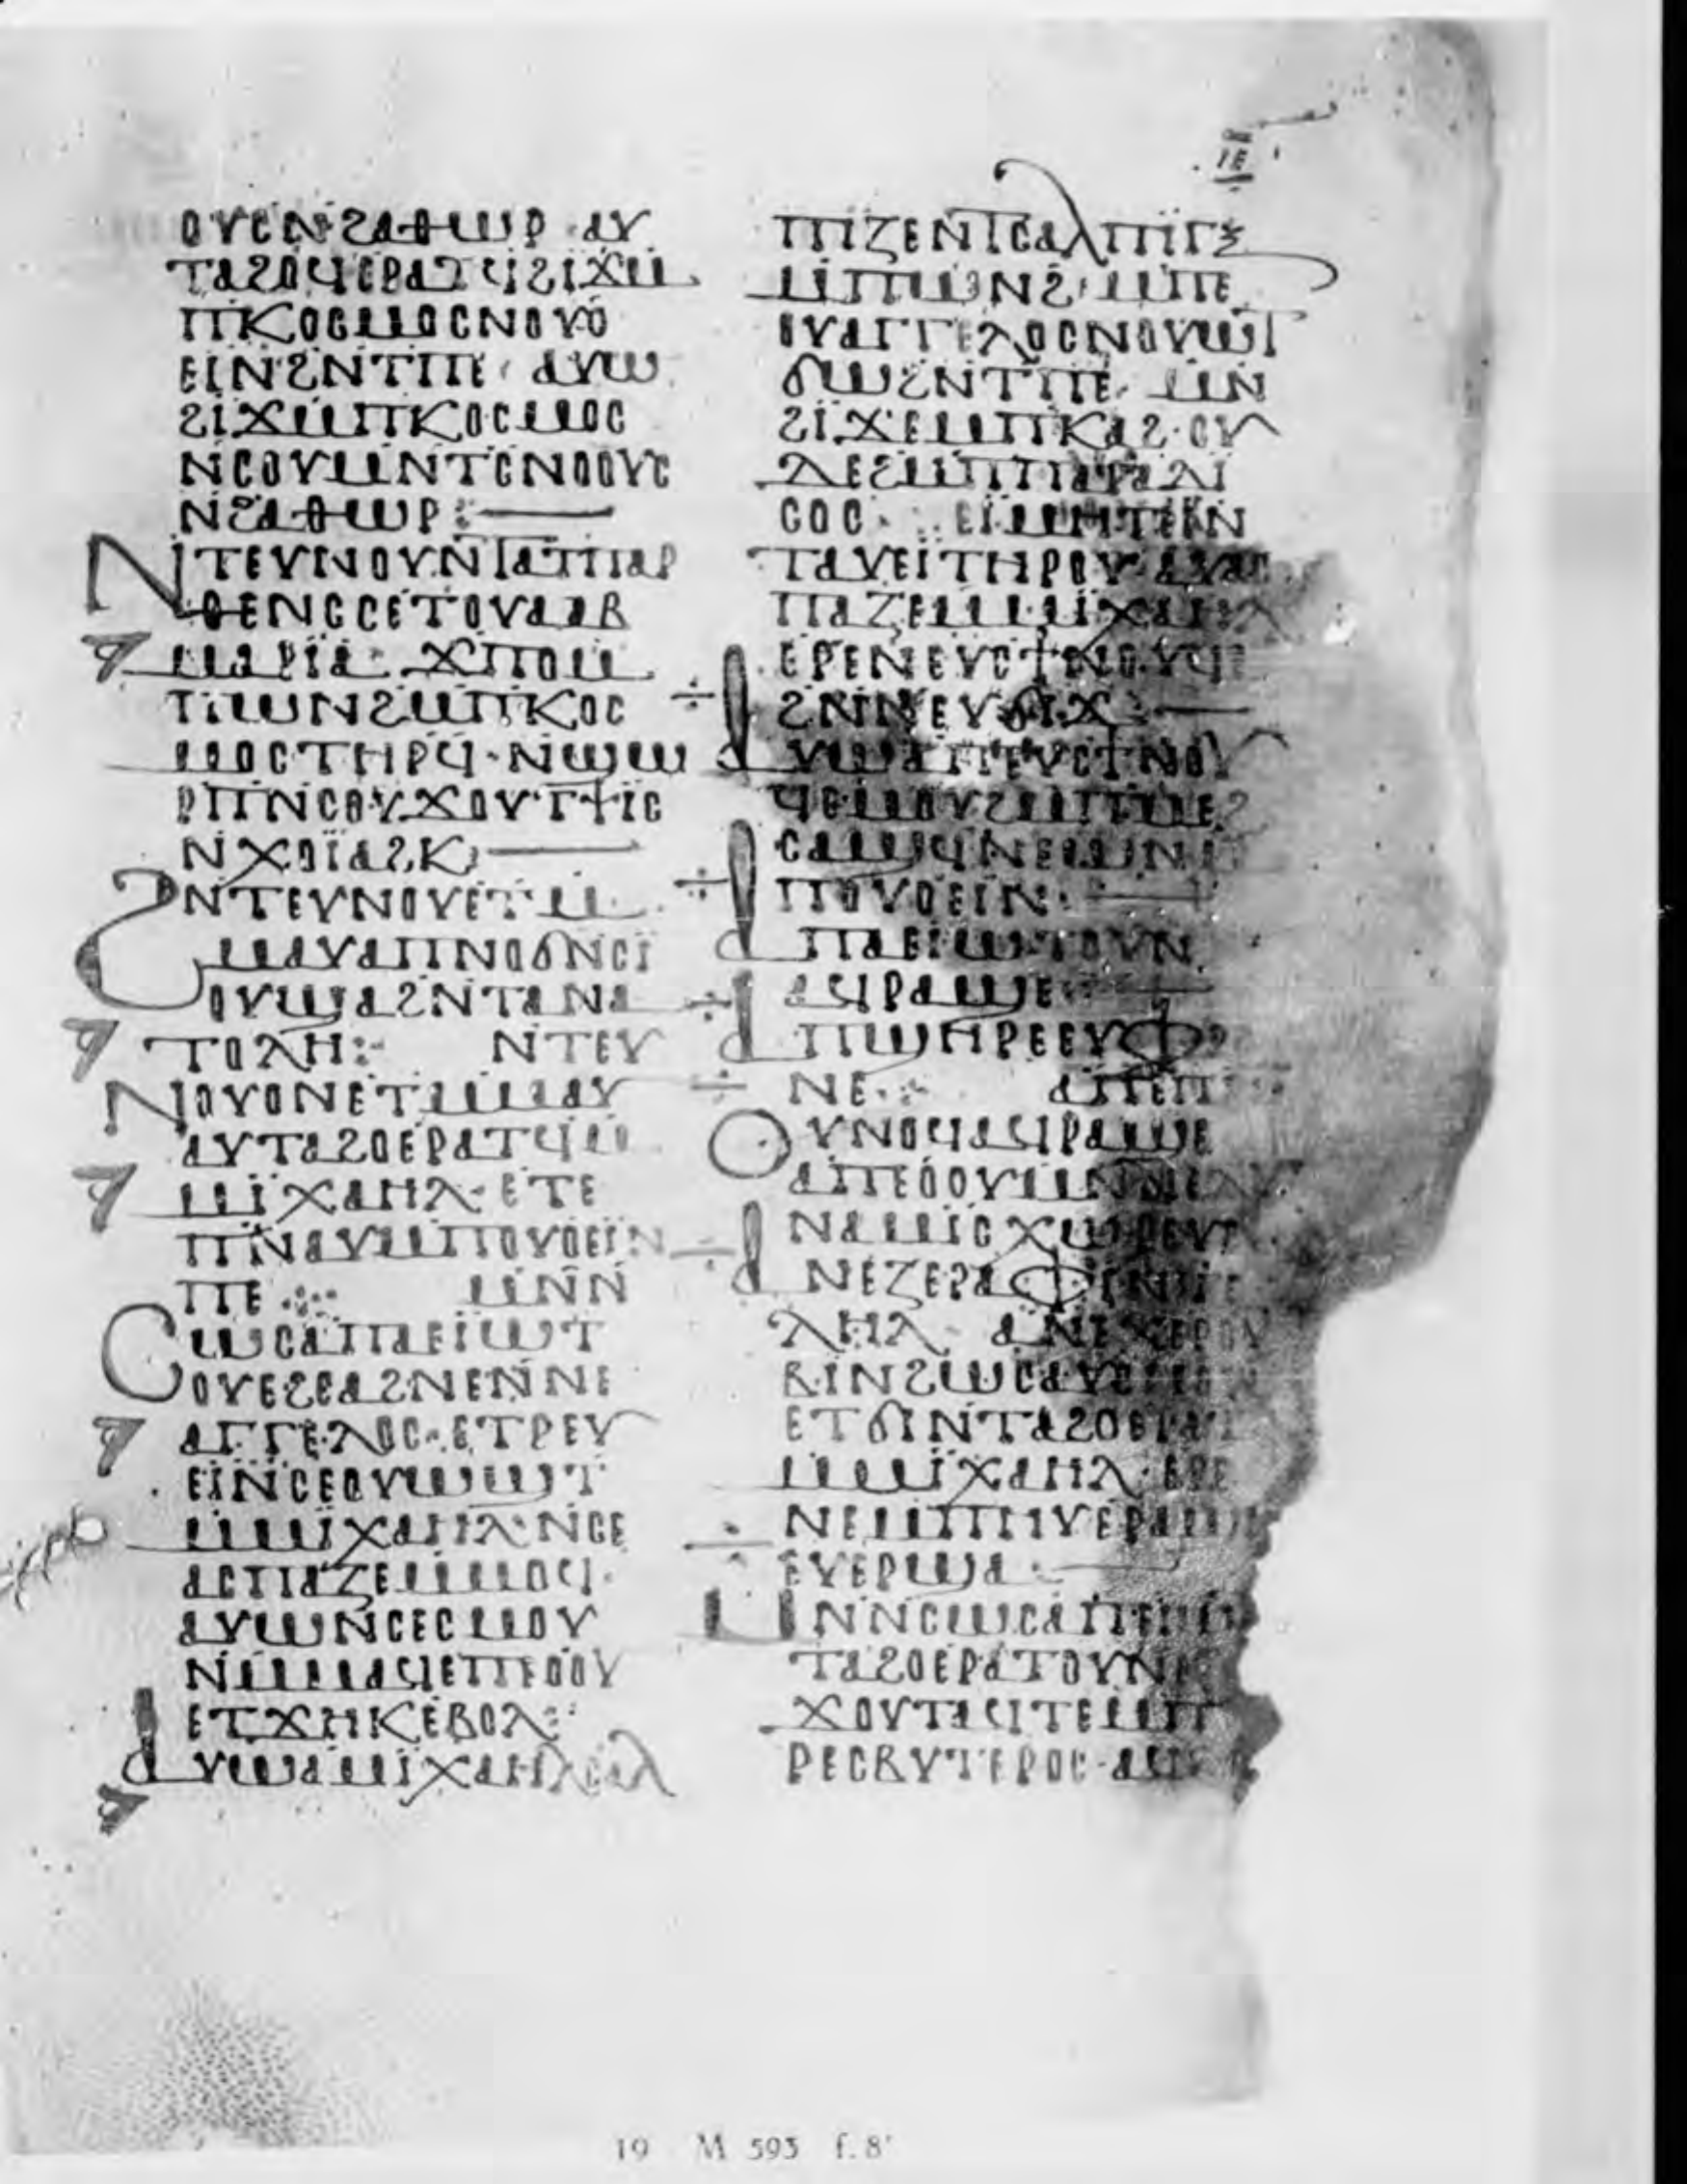 ⲓⲉ
ⲟⲩⲥⲛϩⲁⲑⲱⲣ ⲁⲩ
ⲧⲁϩⲟϥⲉⲣⲁⲧϥϩⲓϫⲙ
ⲡⲕⲟⲥⲙⲟⲥⲛⲟⲩⲟ
ⲉⲓⲛϩⲛⲧⲡⲉ· ⲁⲩⲱ
ϩⲓϫⲙⲡⲕⲟⲥⲙⲟⲥ
ⲛⲥⲟⲩⲙⲛⲧⲥⲛⲟⲟⲩⲥ
ⲛϩⲁⲑⲱⲣ:—
ⲛⲧⲉⲩⲛⲟⲩⲛⲧⲁⲧⲡⲁⲣ
ⲑⲉⲛⲟⲥⲉⲧⲟⲩⲁⲁⲃ
ⲙⲁⲣⲓⲁ· ϫⲡⲟⲙ
ⲡⲱⲛϩⲙⲡⲕⲟⲥ
ⲙⲟⲥⲧⲏⲣϥ·ⲛϣⲱ
ⲣⲡⲛⲥⲟⲩϫⲟⲩⲧⲯⲓⲥ
ⲛⲭⲟⲓⲁϩⲕ:—
ϩⲛⲧⲉⲩⲛⲟⲩⲉⲧⲙ
ⲙⲁⲩⲁⲡⲛⲟϭⲛⲥⲓ
ⲟⲩϣⲁϩⲛⲧⲁⲛⲁ
ⲧⲟⲗⲏ:· ⲛⲧⲉⲩ
ⲛⲟⲩⲟⲛⲉⲧⲙⲙⲁⲩ
ⲁⲩⲧⲁϩⲟⲉⲣⲁⲧϥⲙ
ⲙⲓⲭⲁⲏⲗ·ⲉⲧⲉ
ⲡⲛⲁⲩⲙⲡⲟⲩⲟⲉⲓⲛ
ⲡⲉ ⲙⲛⲛ
ⲥⲱⲥⲁⲡⲁⲉⲓⲱⲧ
ⲟⲩⲉϩⲥⲁϩⲛⲉⲛⲛⲉ
ⲁⲅⲅⲉⲗⲟⲥ·ⲉⲧⲣⲉⲩ
ⲉⲓⲛⲥⲉⲟⲩⲱϣⲧ
ⲙⲙⲓⲭⲁⲏⲗ·ⲛⲥⲉ
ⲁⲥⲡⲁⲍⲉⲙⲙⲟϥ·
ⲁⲩⲱⲛⲥⲉⲥⲙⲟⲩ
ⲛⲙⲙⲁϥⲉⲡⲉⲟⲟⲩ
ⲉⲧϫⲏⲕⲉⲃⲟⲗ:
ⲁⲩⲱⲁⲙⲓⲭⲁⲏⲗⲥⲁⲗ
ⲡⲓⲍⲉⲛⲧⲥⲁⲗⲡⲓⲅⲝ
ⲙⲡⲱⲛϩ· ⲙⲡⲉ
ⲟⲩⲁⲅⲅⲉⲗⲟⲥⲛⲟⲩⲱⲧ
ϭⲱϩⲛⲧⲡⲉ· ⲙⲛ
ϩⲓϫⲉⲙⲡⲕⲁϩ·ⲟⲩ
ⲇⲉϩⲙⲡⲡⲁⲣⲁⲇⲓ
ⲥⲟⲥ· ⲉⲓⲙⲏⲧⲉⲓⲛ
ⲧⲁⲩⲉⲓⲧⲏⲣⲟⲩ·ⲁⲩⲁⲥ
ⲡⲁⲍⲉⲙⲙⲓⲭⲁⲏⲗ
ⲉⲣⲉⲛⲉⲩⲥϯⲛⲟⲩϥⲉ
ϩⲛⲛⲉⲩϭⲓϫ:—
ⲁⲩⲱⲁⲡⲉⲩⲥϯⲛⲟⲩ
ϥⲉⲙⲟⲩϩⲙⲡⲙⲉϩ
ⲥⲁϣϥⲛⲉⲱⲛ
ⲡⲟⲩⲟⲉⲓⲛ:
ⲁⲡⲁⲉⲓⲱⲧⲟⲩⲛ
ⲁϥⲣⲁϣⲉ:—
ⲁⲡϣⲏⲣⲉⲉⲩⲫⲣⲁ
ⲛⲉ: ⲁⲡⲉⲡ
ⲟⲩⲛⲟϥⲁϥⲣⲁϣⲉ
ⲁⲡⲉⲟⲟⲩⲙⲛ
ⲛⲁⲙⲓⲥⲭⲱⲣⲉⲩⲉ
ⲁⲛⲉⲍⲉⲣⲁⲫⲓⲛ
ⲗⲏⲗ· ⲁⲛⲉⲭⲉⲣⲟⲩ
ⲃⲓⲛϩⲱⲥ
ⲉⲧϭⲓⲛⲧⲁϩⲟⲉⲣⲁⲧ
ⲙⲙⲓⲭⲁⲏⲗ·ⲉⲣⲉ
ⲛⲉⲙⲡⲏⲩⲉⲣⲁϣⲉ
ⲉⲩⲉⲣϣⲁ:—
ⲙⲛⲛⲥⲱⲥⲁⲡⲉ
ⲧⲁϩⲟⲉⲣⲁⲧⲟⲩⲙ
ϫⲟⲩⲧⲁϥⲧⲉⲙⲡ
ⲣⲉⲥⲃⲩⲧⲉⲣⲟⲥ·
19 M 593 f. 8ʳ